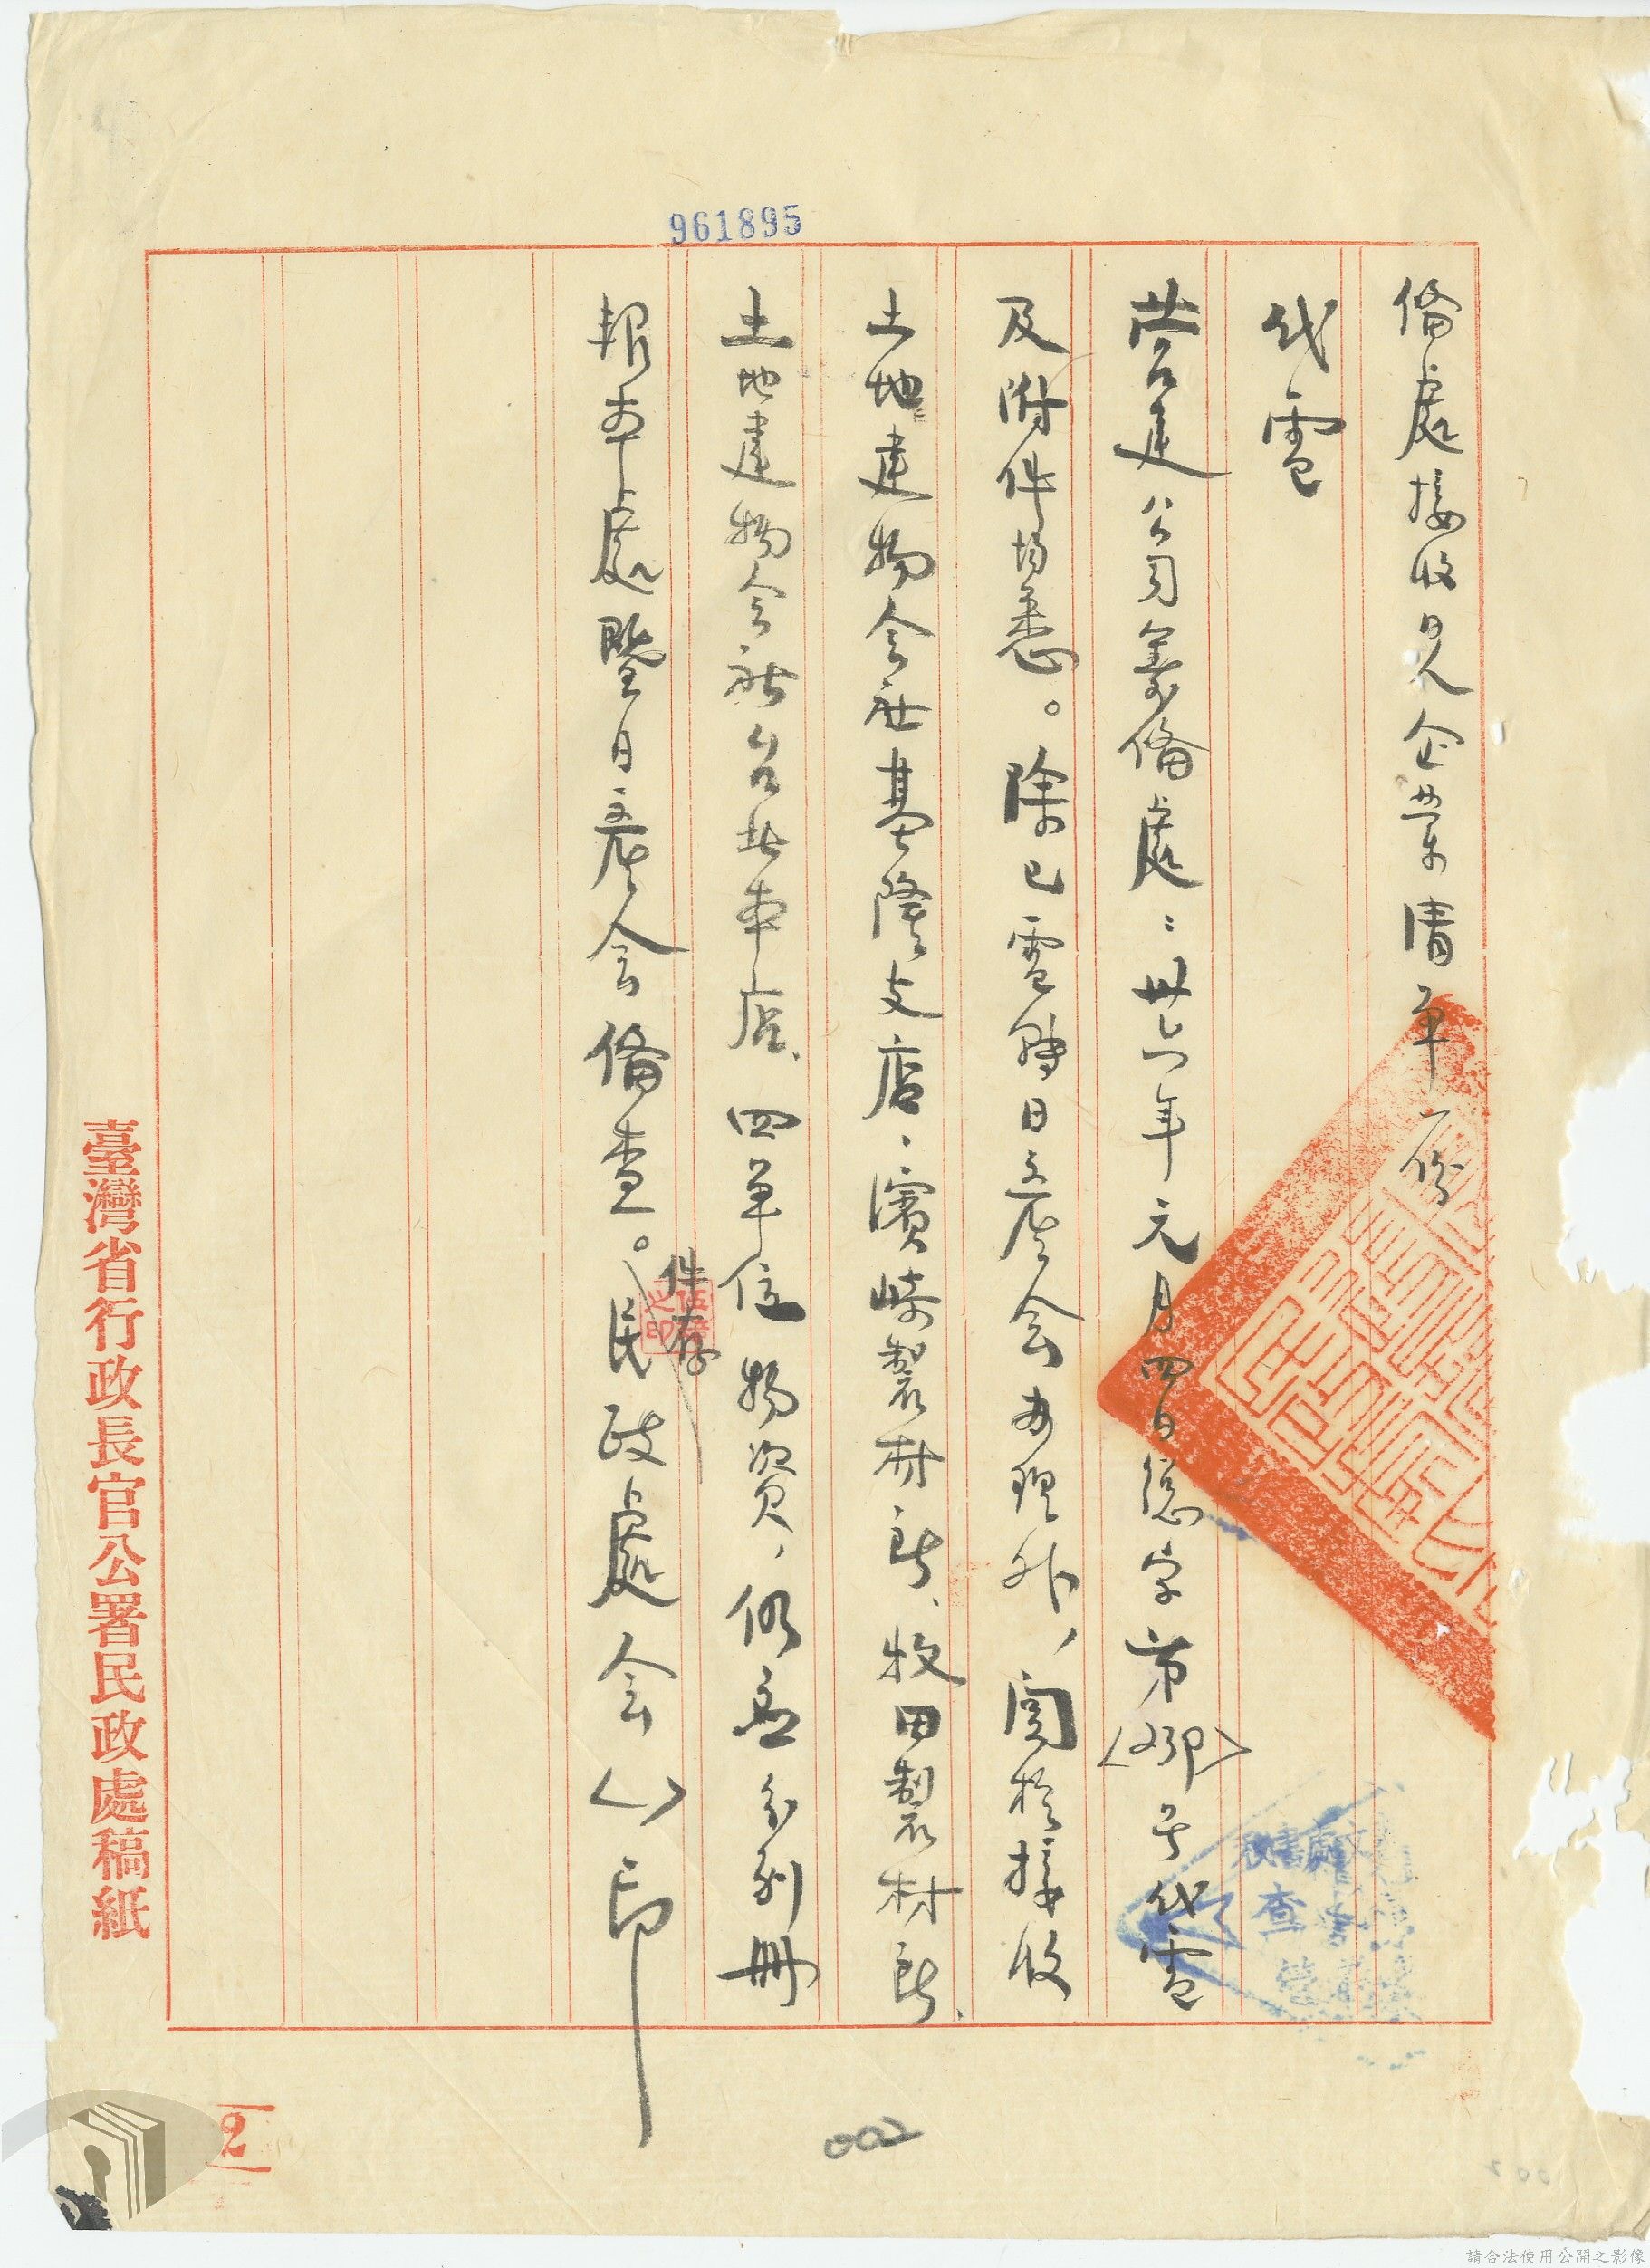 961895
備處接收日人企業清單一份
代電
營建公司籌備處：卅六年元月四日總字第 號代電
及附件均悉。除已電轉日產會办理外，關於接收
土地建物会社基隆支店、濱崎製材所、牧田製材所、
土地建物会社台北本店、四單位物資，仍希分别册
報本處暨日產会備查。民政處会〈〉印
件存
臺灣省行政長官公署民政處稿紙
2
002
請合法使用公開之影像